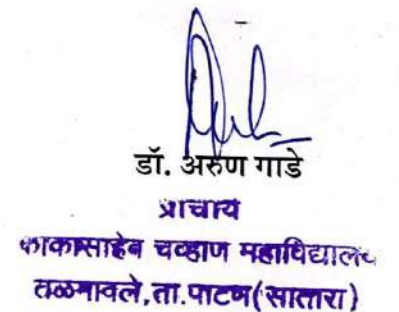 डॉ. अरुण गाडे
प्राचार्य
काकासाहेब चव्हाण महाविद्यालय
तळमावले, ता. पाटण (सातारा)